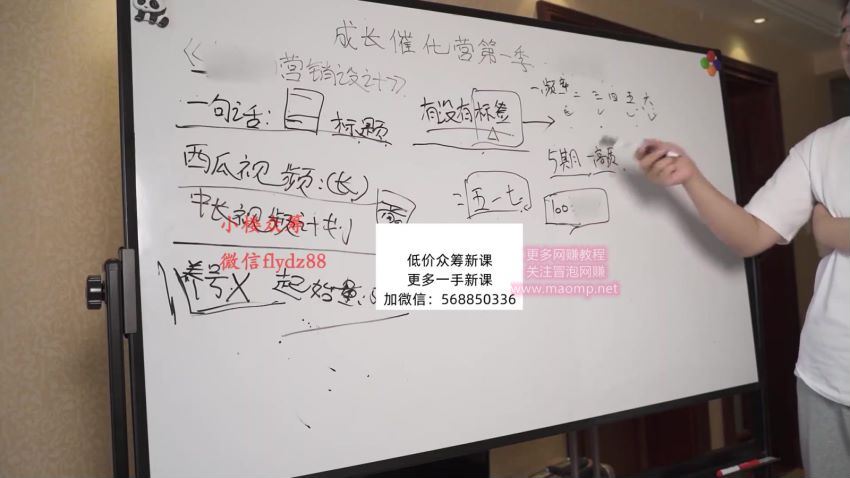 成长催化营第一季
营销设计》
一句话:
标题
有没有标签
西瓜视频:(长)
中长视频计划
=五一七
5期一
100
养号X 起始量:
一 频率 二 三 四 五 六
小楼众筹
微信flydz88
低价众筹新课
更多一手新课
加微信:568850336
更多网赚教程
关注冒泡网赚
www.maomp.net